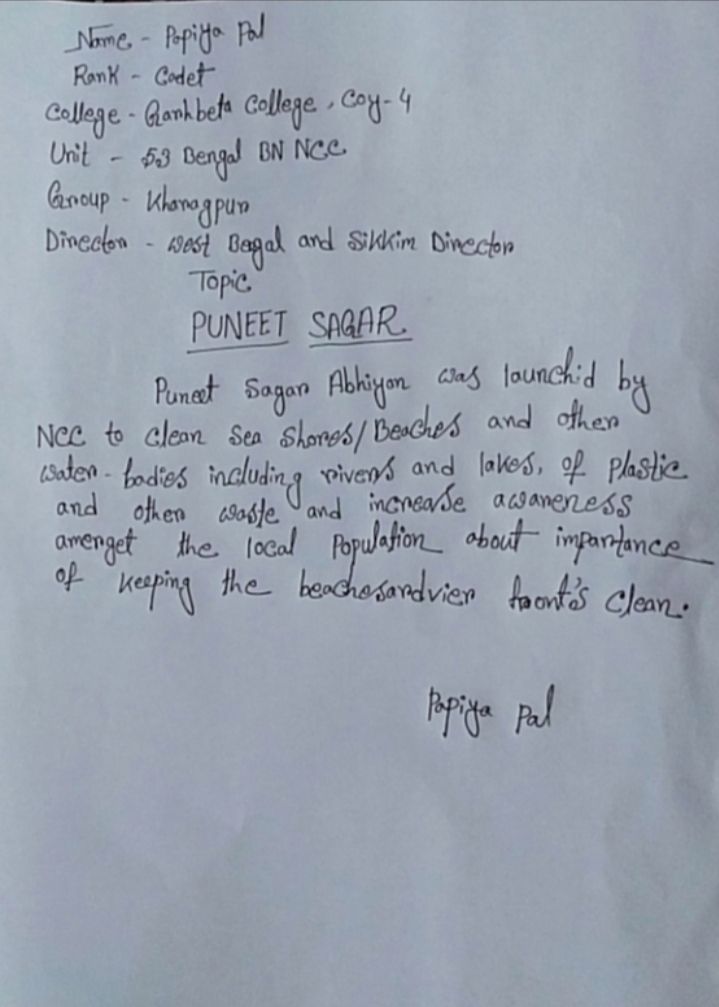 Name - Papiya Pal
Rank - Cadet
College - Garhbeta College, Coy-4
Unit - 53 Bengal BN NCC
Group - Kharagpur
Director - West Begal and Sikkim Director
Topic
PUNEET SAGAR
Puneet Sagar Abhiyan was launchid by
NCC to clean Sea Shores/Beaches and other
water-bodies including rivers and lakes, of plastic
and other waste and increase awareness
amenget the local Population about importance
of keeping the beachesandvier front's Clean.
Papiya Pal